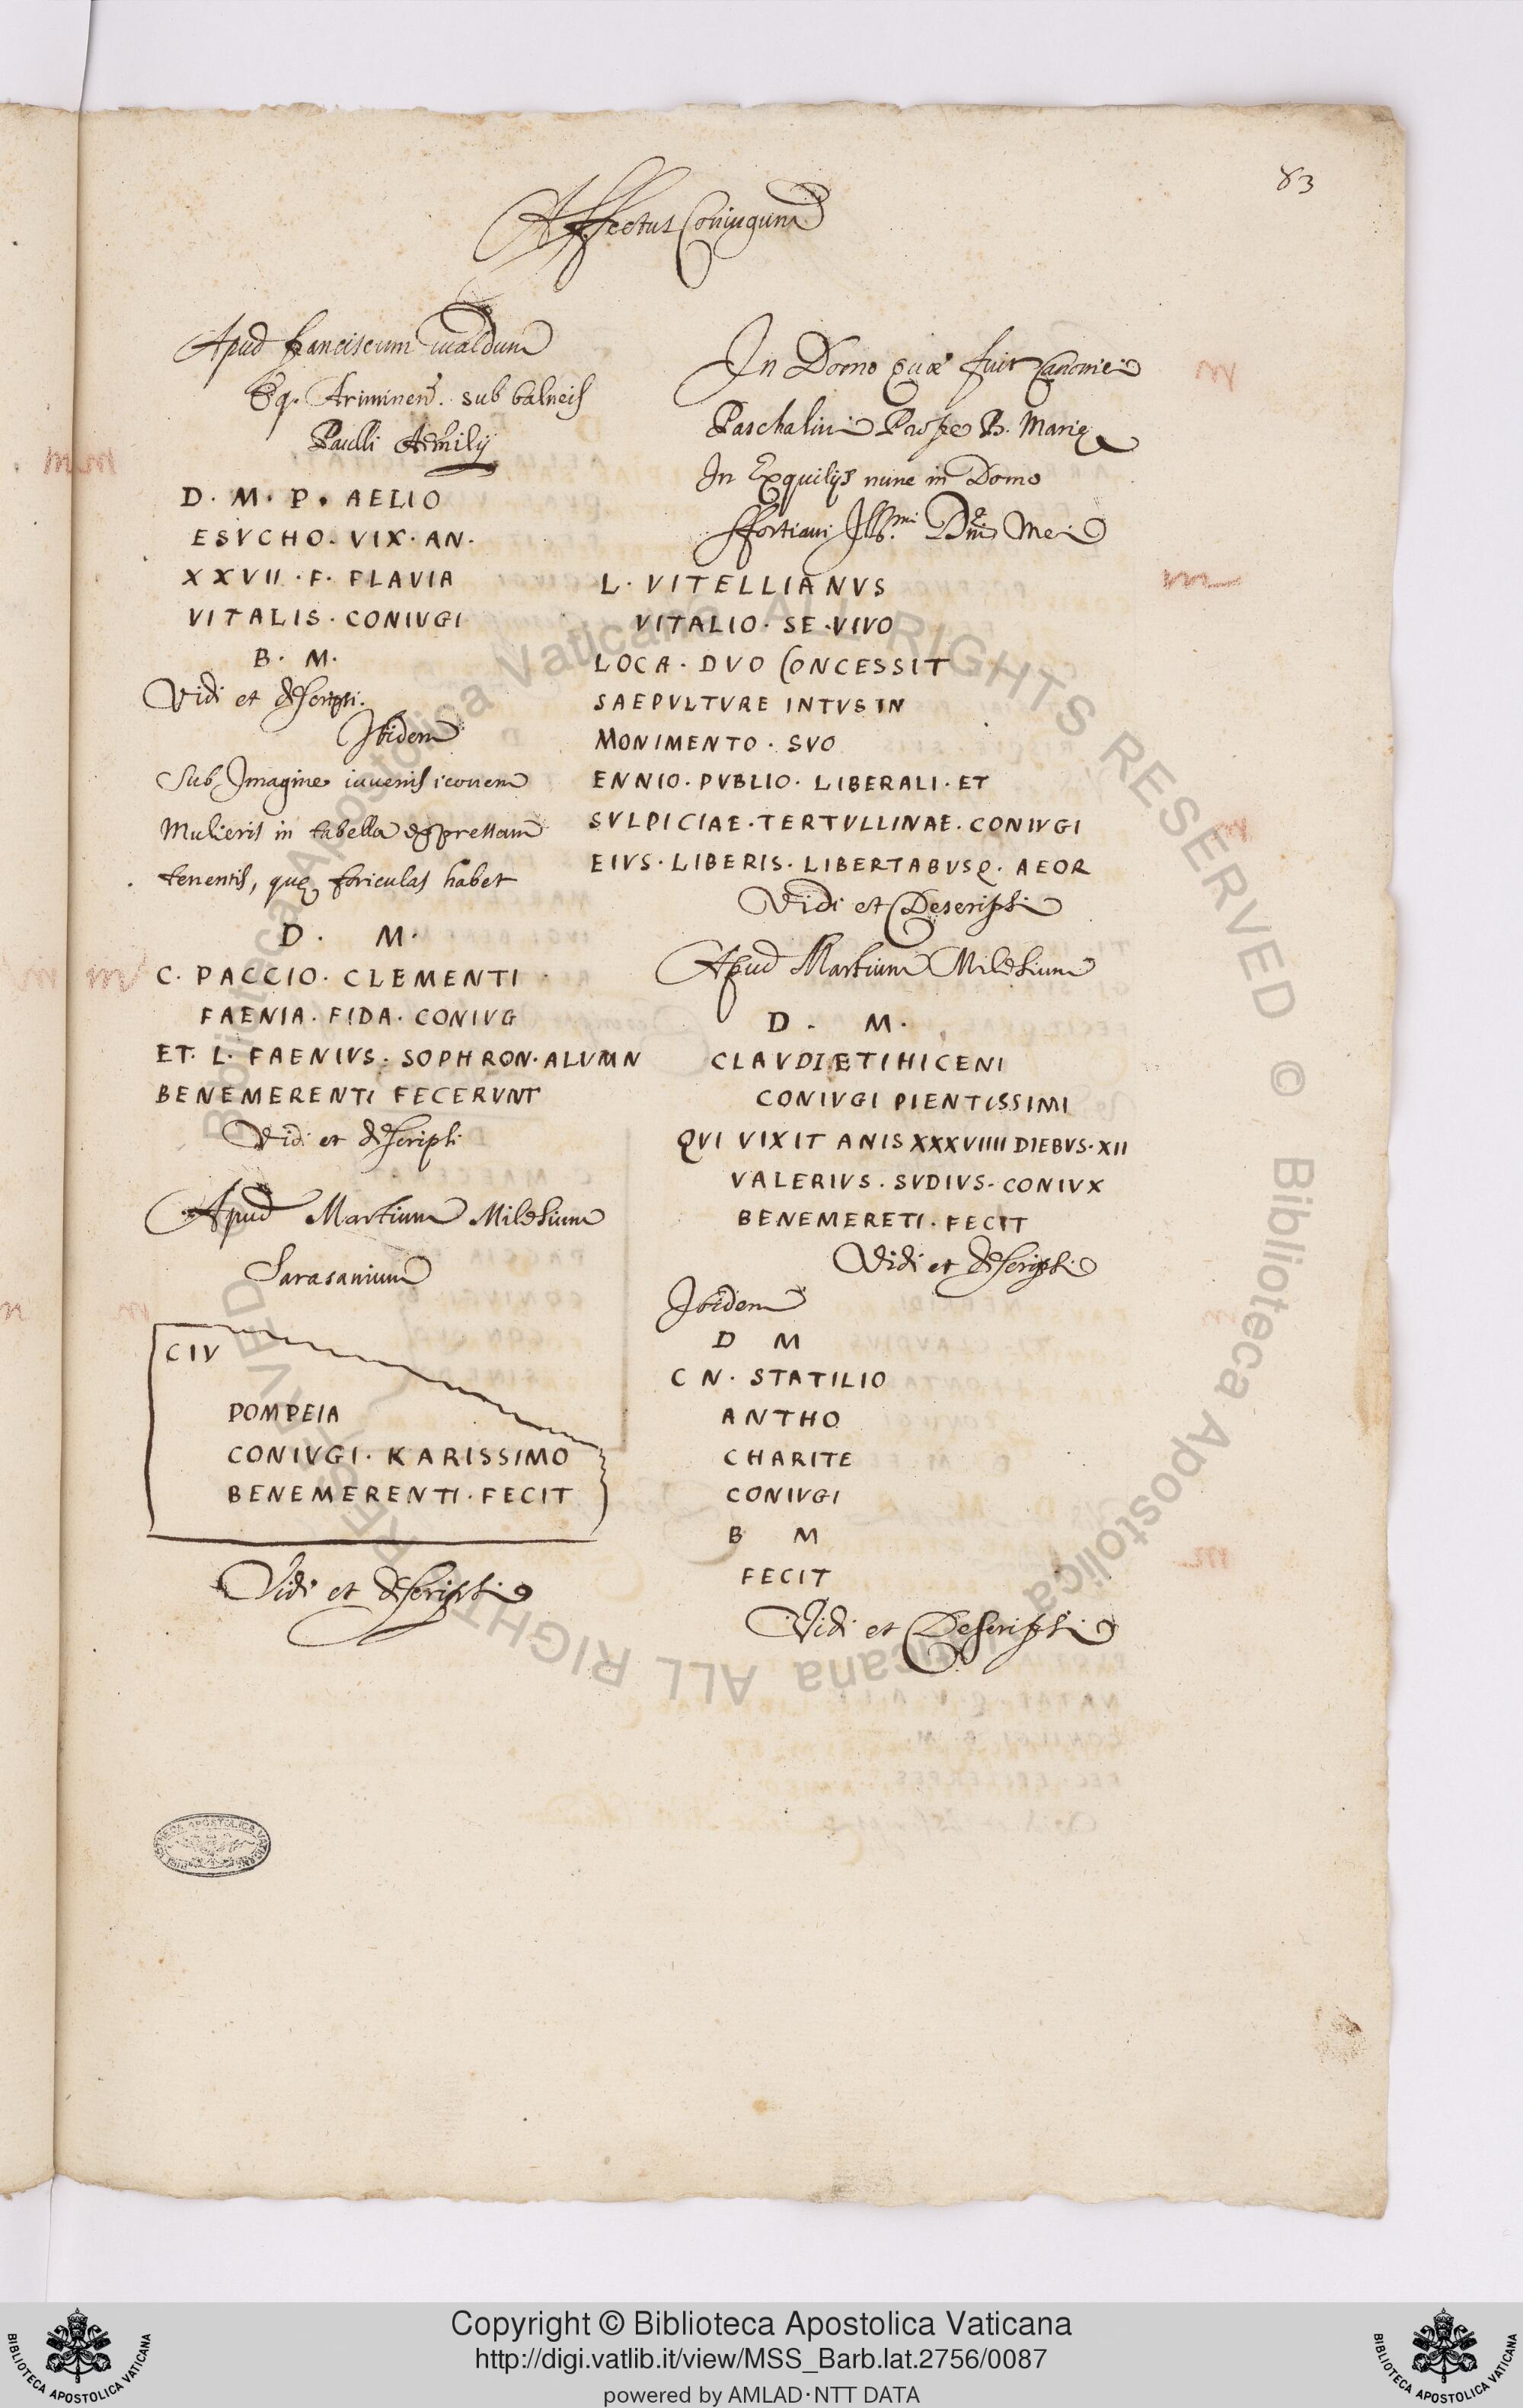 83
Affectus Coniugum
Apud Franciscum Gualdum
Eq. Ariminen. sub balneis
Paulli Aemilij
D. M. P. AELIO
ESVCHO. VIX. AN.
XXVII. F. FLAVIA
VITALIS. CONIVGI
B. M.
Vidi et descripsi.
Ibidem
Sub Imagine iuvenis iconem
Mulieris in tabella expressam
tenentis, quę foriculas habet
D. M.
C. PACCIO. CLEMENTI
FAENIA. FIDA. CONIVG
ET. L. FAENIVS. SOPHRON. ALVMN
BENEMERENTI FECERVNT
Vidi et descripsi
Apud Martium Milesium
Sarasanium
CIV
POMPEIA
CONIVGI. KARISSIMO
BENEMERENTI. FECIT
Vidi et descripsi
In Domo quæ fuit Canonici
Paschalini Prope B. Marię
In Exquilijs nunc in Domo
Sfortiani Ill.mi Dni Mei
L. VITELLIANVS
VITALIO. SE. VIVO
LOCA. DVO CONCESSIT
SAEPVLTVRE INTVS IN
MONIMENTO. SVO
ENNIO. PVBLIO. LIBERALI. ET
SVLPICIAE. TERTVLLINAE. CONIVGI
EIVS. LIBERIS. LIBERTABVSQ. AEOR
Vidi et Descripsi
Apud Martium Milesium
D. M.
CLAVDIÆTIHICENI
CONIVGI PIENTISSIMI
QVI VIXIT ANIS XXXVIIII DIEBVS. XII
VALERIVS. SVDIVS. CONIVX
BENEMERETI. FECIT
Vidi et descripsi
Ibidem
D M
C N. STATILIO
ANTHO
CHARITE
CONIVGI
B M
FECIT
Vidi et Descripsi
Copyright © Biblioteca Apostolica Vaticana
http://digi.vatlib.it/view/MSS_Barb.lat.2756/0087
powered by AMLAD·NTT DATA